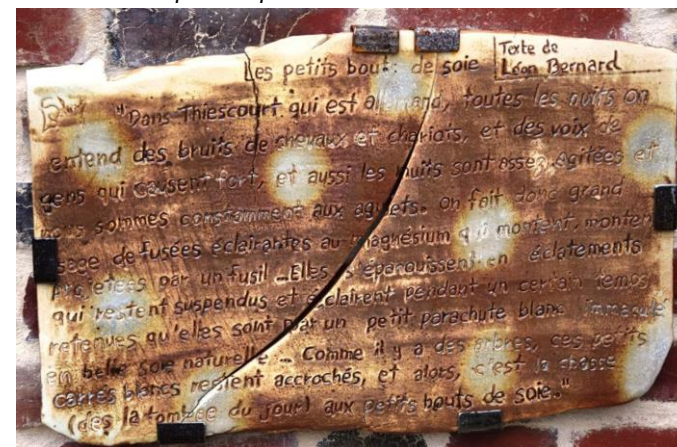 Les petits bouts de soie
Texte de
Léon Bernard
"Dans Thiescourt qui est allemand, toutes les nuits on
entend des bruits de chevaux et chariots, et des voix de
gens qui causent fort, et aussi les nuits sont assez agitées et
nous sommes constamment aux aguets. On fait donc grand
usage de fusées éclairantes au magnésium qui montent, montent
projetées par un fusil _ Elles s'épanouissent en éclatements
qui restent suspendus et éclairent pendant un certain temps
retenues qu'elles sont par un petit parachute blanc immaculé
en belle soie naturelle _ Comme il y a des arbres, ces petits
carrés blancs restent accrochés, et alors, c'est la chasse
(dès la tombée du jour) aux petits bouts de soie."